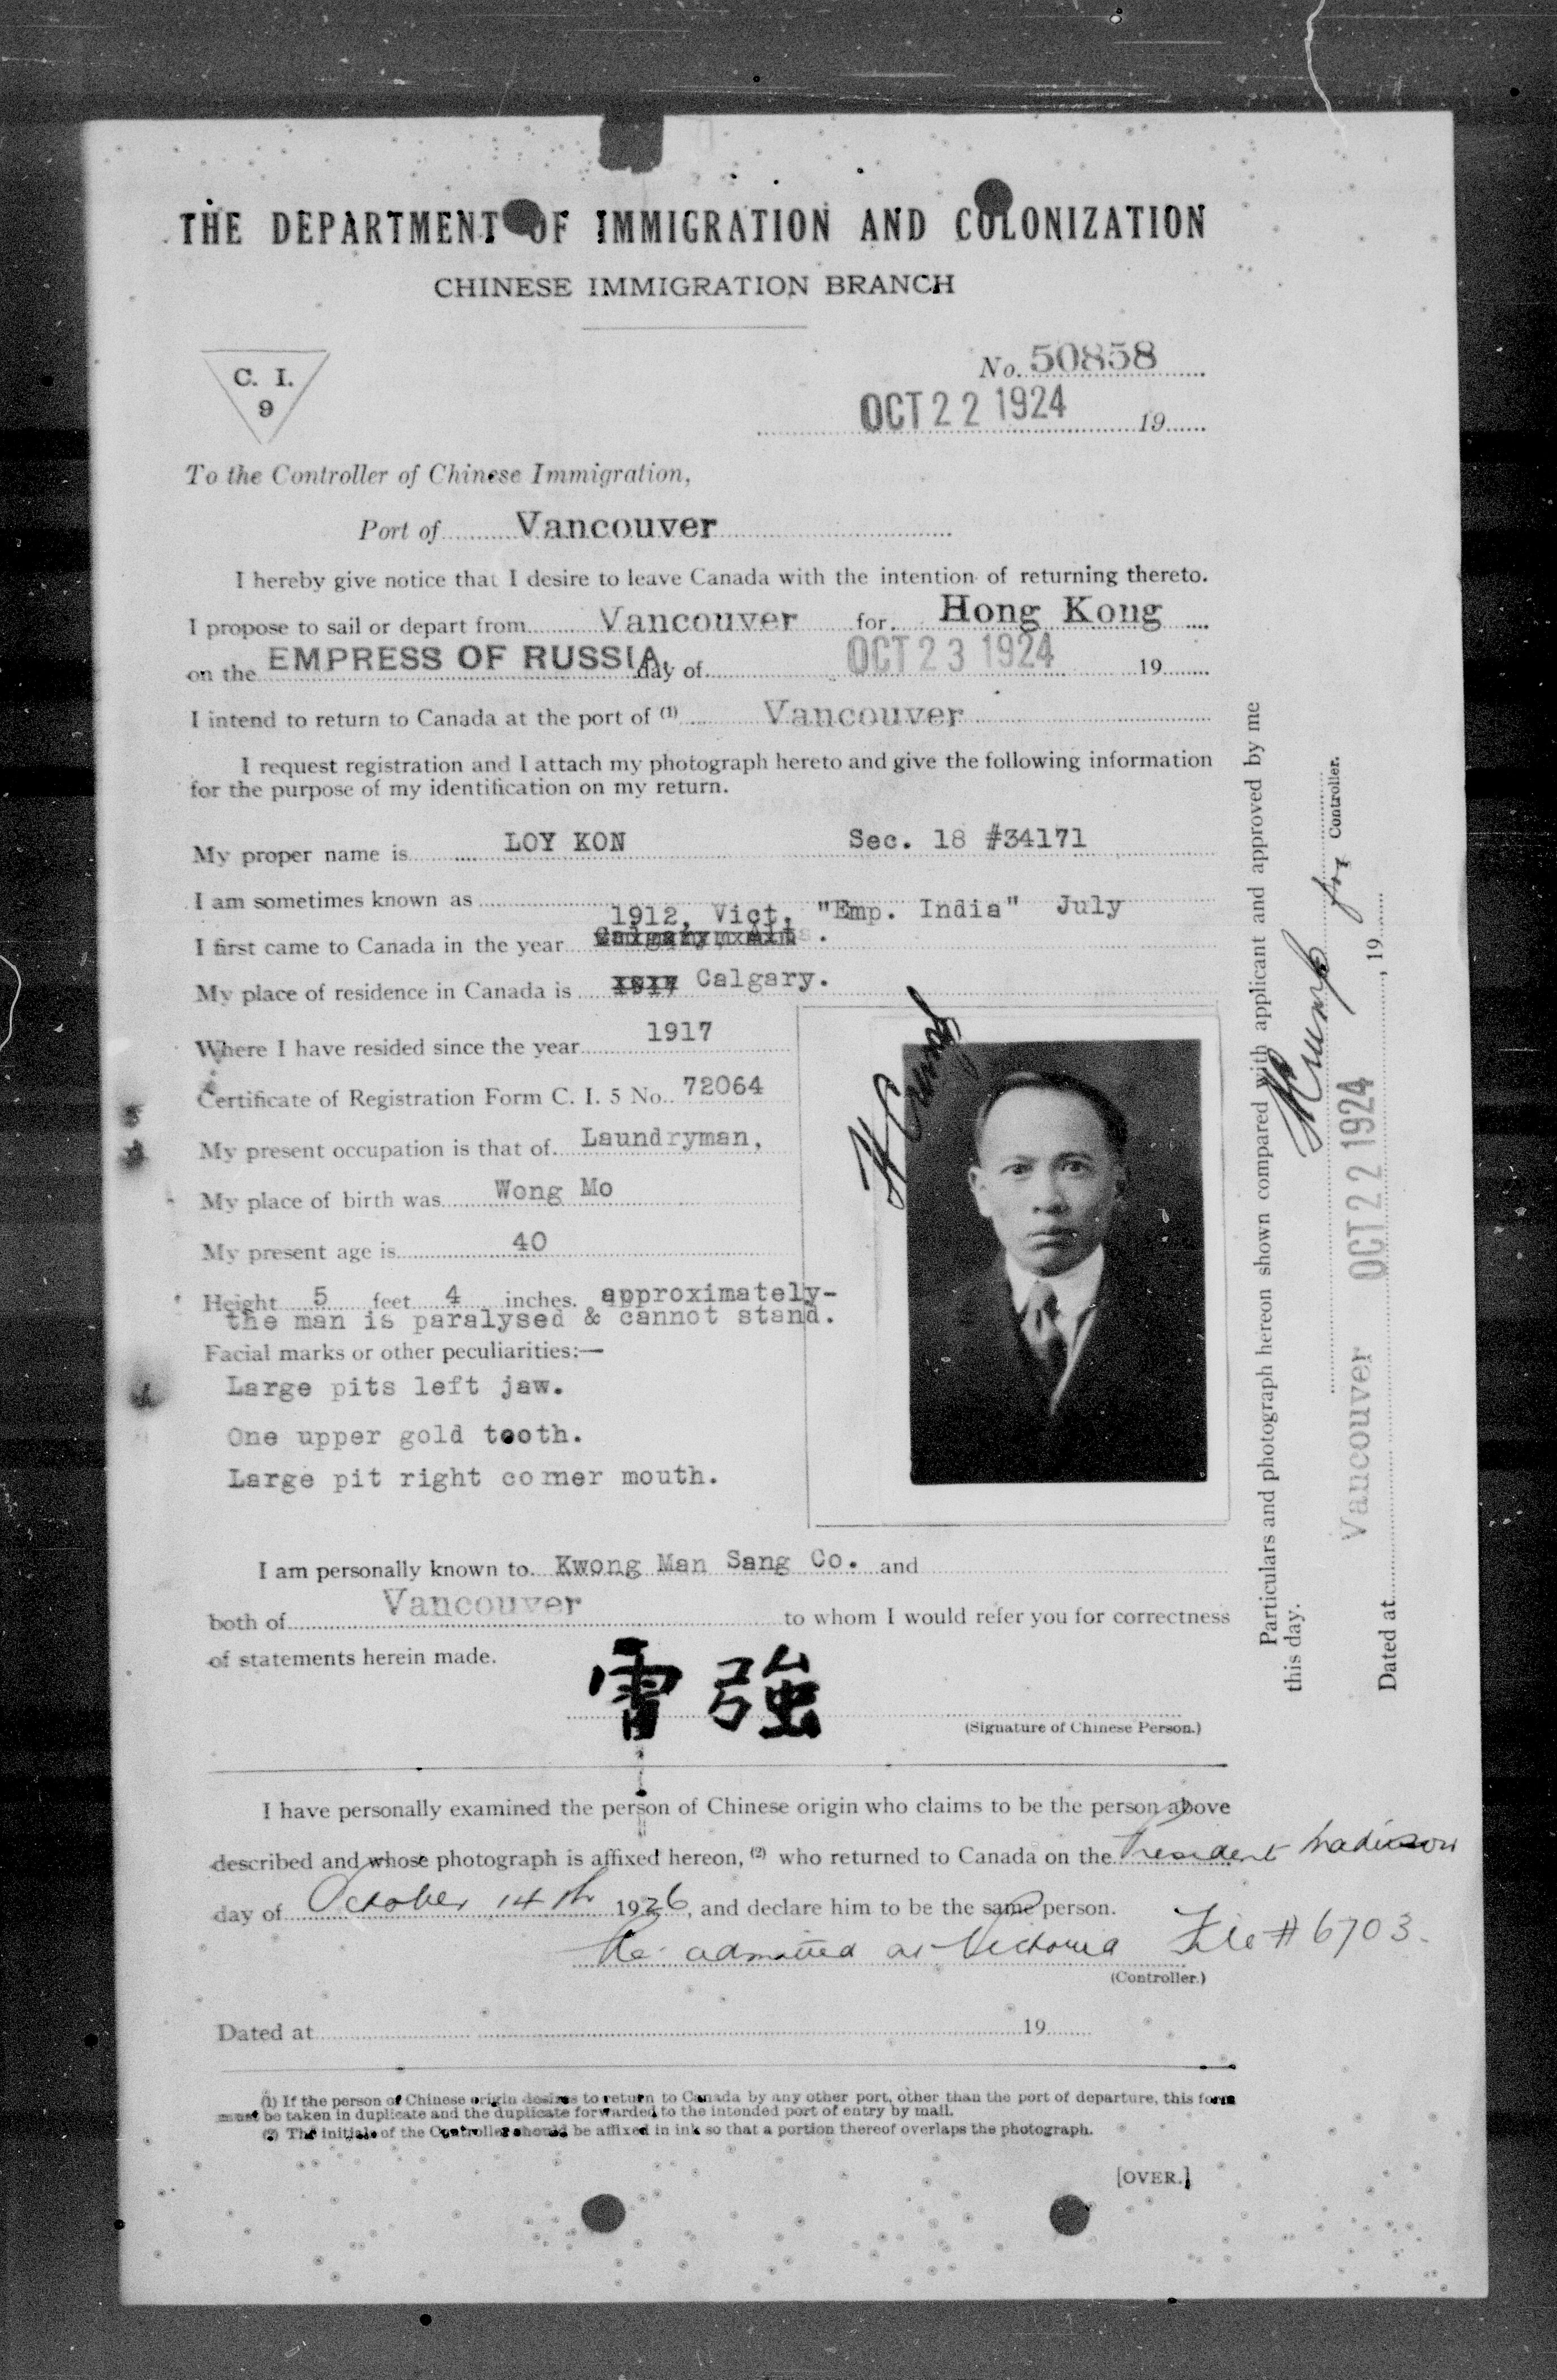 THE DEPARTMENT OF IMMIGRATION AND COLONIZATION
CHINESE IMMIGRATION BRANCH
C. I.
9
No. 50858
OCT 22 1924 19
To the Controller of Chinese Immigration,
Port of Vancouver
I hereby give notice that I desire to leave Canada with the intention of returning thereto.
I propose to sail or depart from Vancouver for Hong Kong
on the EMPRESS OF RUSSIA. day of OCT 23 1924 19
I intend to return to Canada at the port of (1) Vancouver
I request registration and I attach my photograph hereto and give the following information
for the purpose of my identification on my return.
My proper name is LOY KON Sec. 18 #34171
I am sometimes known as
1912, Vict. "Emp. India" July
I first came to Canada in the year
My place of residence in Canada is Calgary.
Where I have resided since the year 1917
Certificate of Registration Form C. I. 5 No. 72064
My present occupation is that of Laundryman,
My place of birth was Wong Mo
My present age is 40
Height 5 feet 4 inches. approximately-
the man is paralysed & cannot stand.
Facial marks or other peculiarities:—
Large pits left jaw.
One upper gold tooth.
Large pit right corner mouth.
I am personally known to Kwong Man Sang Co. and
both of Vancouver to whom I would refer you for correctness
of statements herein made.
雷強
(Signature of Chinese Person.)
I have personally examined the person of Chinese origin who claims to be the person above
described and whose photograph is affixed hereon, (2) who returned to Canada on the President Madison
day of October 14th 1926, and declare him to be the same person.
Re admitted at Victoria File # 6703.
(Controller.)
Dated at 19
(1) If the person of Chinese origin desires to return to Canada by any other port, other than the port of departure, this form
must be taken in duplicate and the duplicate forwarded to the intended port of entry by mail.
(2) The initials of the Controller should be affixed in ink so that a portion thereof overlaps the photograph.
[OVER.]
Particulars and photograph hereon shown compared with applicant and approved by me
this day.
for Controller.
Dated at Vancouver OCT 22 1924, 19